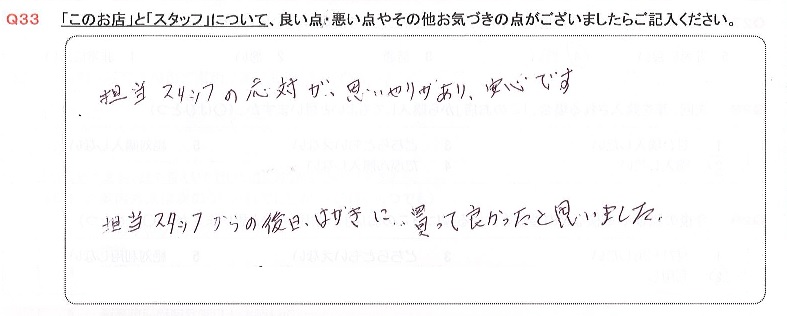 Q33 「このお店」と「スタッフ」について、良い点・悪い点やその他お気づきの点がございましたらご記入ください。
担当スタッフの応対が、思いやりがあり、安心です
担当スタッフからの後日、はがきに、買って良かったと思いました。